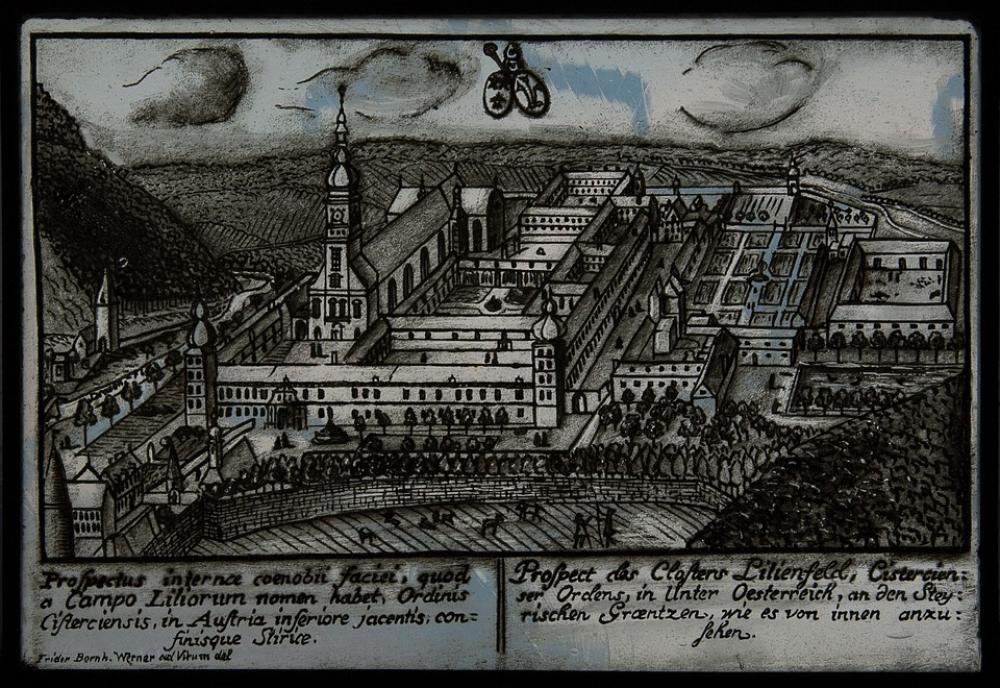 Proſpectus internæ coenobii faciei, quod
a Campo Liliorum nomen habet, Ordinis
Ciſterciensis, in Auſtria inferiore jacentis, con=
finisque Stiriæ.
Frider Bernh. Werner ad Vivum del
Proſpect des Cloſters Lilienfeld, Cistercien=
ser Ordens, in Unter Oesterreich, an den Stey=
rischen Græntzen, wie es von innen anzu=
ſehen.